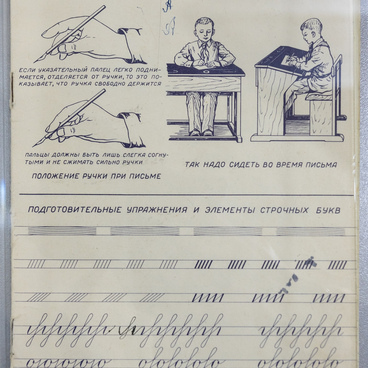 ЕСЛИ УКАЗАТЕЛЬНЫЙ ПАЛЕЦ ЛЕГКО ПОДНИ-
МАЕТСЯ, ОТДЕЛЯЕТСЯ ОТ РУЧКИ, ТО ЭТО ПО-
КАЗЫВАЕТ, ЧТО РУЧКА СВОБОДНО ДЕРЖИТСЯ
ПАЛЬЦЫ ДОЛЖНЫ БЫТЬ ЛИШЬ СЛЕГКА СОГНУ-
ТЫМИ И НЕ СЖИМАТЬ СИЛЬНО РУЧКИ.
ПОЛОЖЕНИЕ РУЧКИ ПРИ ПИСЬМЕ
ТАК НАДО СИДЕТЬ ВО ВРЕМЯ ПИСЬМА
ПОДГОТОВИТЕЛЬНЫЕ УПРАЖНЕНИЯ И ЭЛЕМЕНТЫ СТРОЧНЫХ БУКВ